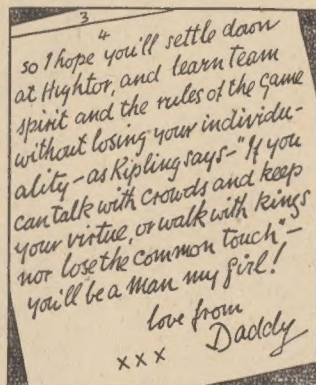 3
4
so I hope you'll settle down
at Hightor, and learn team
spirit and the rules of the game
without losing your individu-
ality - as Kipling says - "If you
can talk with crowds and keep
your virtue, or walk with kings
nor lose the common touch" -
you'll be a Man my girl!
love from
Daddy
x x x